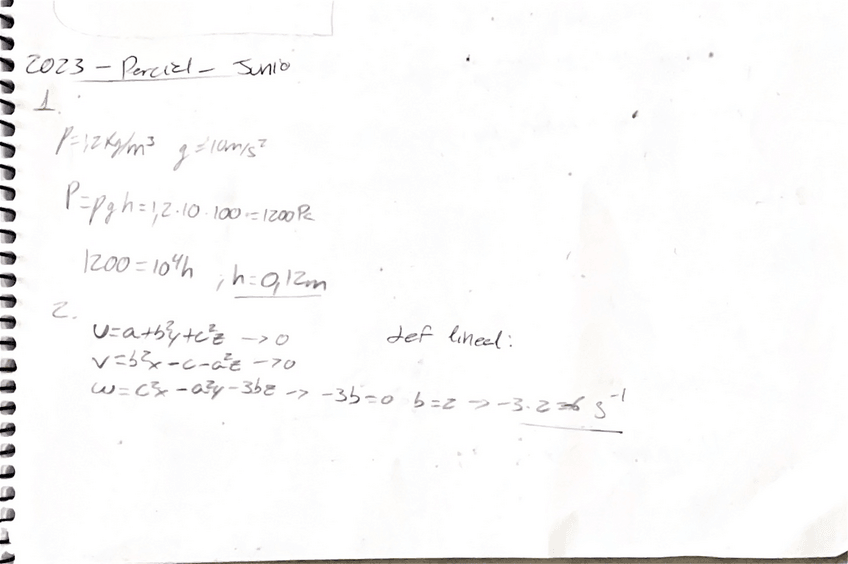 2023 - Parcial - Junio
1.
ρ=1,2Kg/m³ g=10m/s²
P=ρgh=1,2·10·100=1200Pa
1200=10⁴h ; h=0,12m
2.
u=a+b²y+c²z → 0 def lineal:
v=b²x-c-a²z → 0
w=c²x-a²y-3bz → -3b=0 b=2 → -3·2=-6 s⁻¹